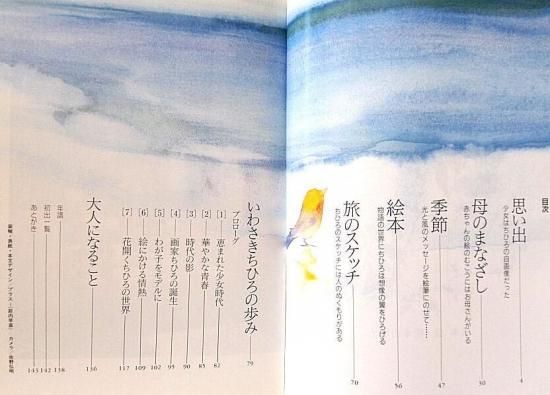 目次
思い出
少女はちひろの自画像だった
4
母のまなざし
赤ちゃんの絵のむこうにはお母さんがいる
30
季節
光と風のメッセージを絵筆にのせて……
47
絵本
物語の世界にちひろは想像の翼をひろげる
56
旅のスケッチ
ちひろのスケッチには人のぬくもりがある
70
いわさきちひろの歩み
79
プロローグ
[1] 恵まれた少女時代
82
[2] 華やかな青春
85
[3] 時代の影
90
[4] 画家ちひろの誕生
95
[5] わが子をモデルに
102
[6] 絵にかける情熱
109
[7] 花開くちひろの世界
117
大人になること
136
年譜
138
初出一覧
142
あとがき
143